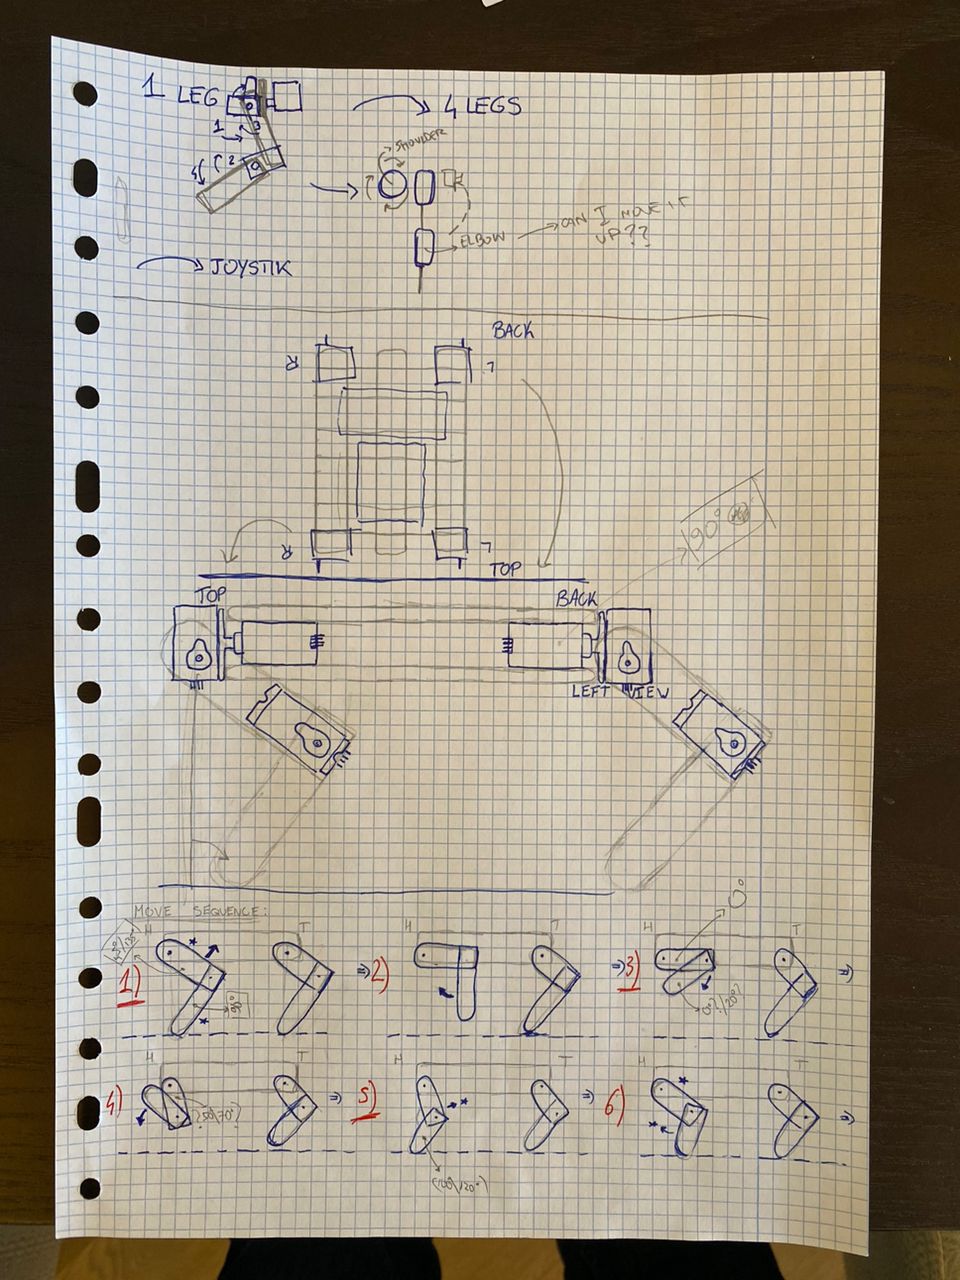 1 LEG
4 LEGS
1
3
2
SHOULDER
ELBOW
CAN I MOVE IT
UP??
JOYSTIK
BACK
R
L
R
L
TOP
90°
TOP
BACK
LEFT VIEW
MOVE SEQUENCE:
H
T
1)
90°
2)
H
T
3)
H
T
0°
0°?/20°?
4)
H
T
(50/70°)
5)
H
T
6)
H
T